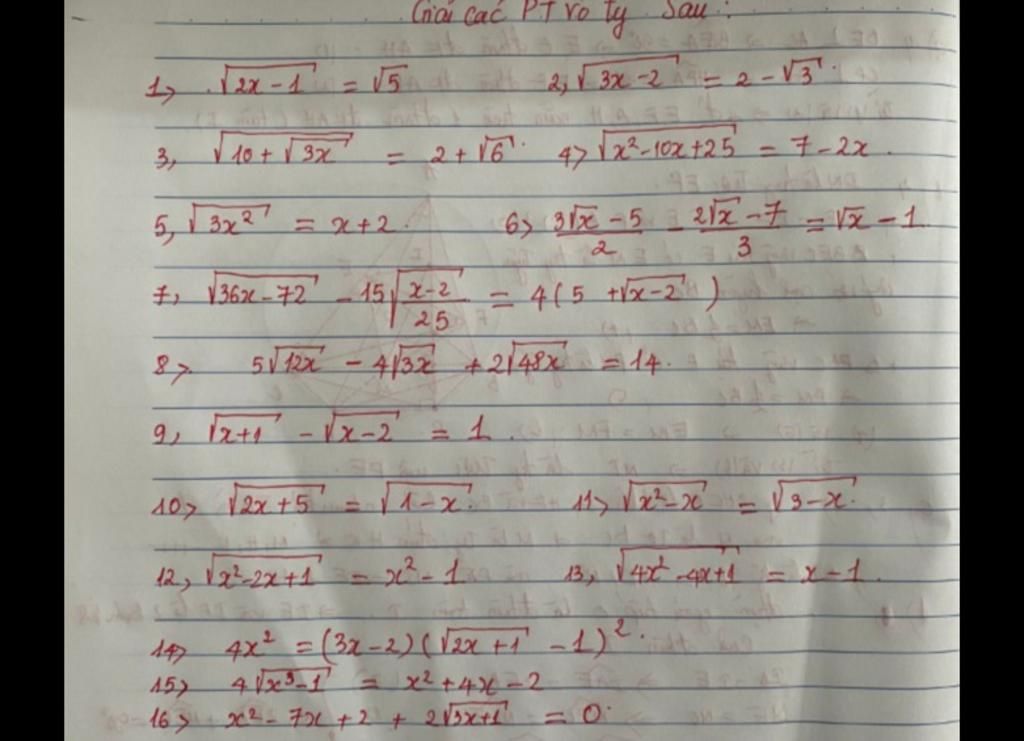 Giải các PT vô tỷ sau:
1> √(2x-1) = √5 2, √(3x-2) = 2 - √3.
3, √(10+√(3x)) = 2 + √6. 4> √(x²-10x+25) = 7 - 2x.
5, √(3x²) = x+2. 6> (3√x - 5)/2 - (2√x - 7)/3 = √x - 1
7, √(36x-72) - 15√((x-2)/25) = 4(5 + √(x-2))
8> 5√(12x) - 4√(3x) + 2√(48x) = 14.
9, √(x+1) - √(x-2) = 1.
10> √(2x+5) = √(1-x). 11> √(x²-x) = √(3-x).
12, √(x²-2x+1) = x² - 1 13, √(4x²-4x+1) = x - 1.
14> 4x² = (3x-2)(√(2x+1) - 1)².
15> 4√(x³-1) = x² + 4x - 2
16> x² - 7x + 2 + 2√(3x+1) = 0.